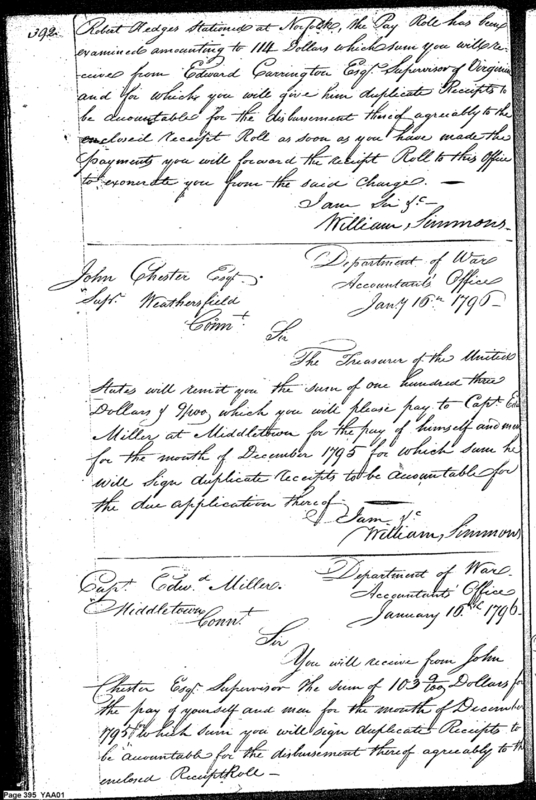 392.
Robert Hedges stationed at Norfolk, the Pay Roll has been
examined amounting to 114 Dollars which sum you will re-
ceive from Edward Carrington Esqr. Supervisor of Virginia
and for which you will give him duplicate Receipts to
be accountable for the disbursement thereof agreeably to the
enclosed receipt Roll as soon as you have made the
payments you will forward the receipt Roll to this Office
to exonerate you from the said charge. —
I am Sir &c —
William, Simmons.
Department of War
Accountants Office
Jany 16th 1796 —
John Chester Esqr.
Supr. Weathersfield
Connt
Sir
The Treasurer of the United
States will remit you the sum of one hundred three
Dollars & 9/100 which you will please pay to Capt. Edw
Miller at Middletown for the pay of himself and men
for the month of December 1795 for which sum he
will sign duplicate receipts to be accountable for
the due application thereof —
I am &c
William, Simmons
Department of War
Accountants Office
January 16th 1796
Capt. Edwd Miller.
Middletown
Connt
Sir
You will receive from John
Chester Esqr. Supervisor the sum of 103 9/100 Dollars for
the pay of yourself and men for the month of December
1795 for which sum you will sign duplicate Receipts to
be accountable for the disbursement thereof agreeably to the
enclosed Receipt Roll —
Page 395 YAA01